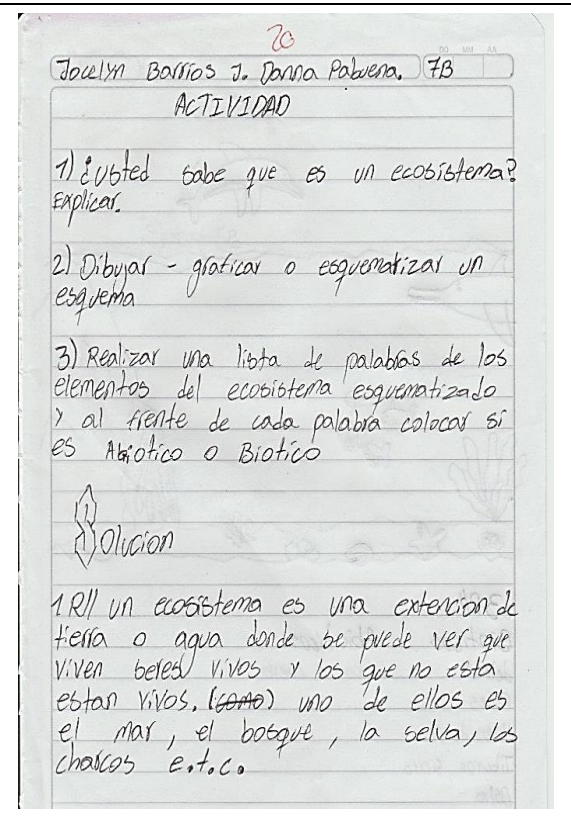 20
DD MM AA
Jocelyn Barrios J. Danna Pabuena. 7B
ACTIVIDAD
1) ¿Usted sabe que es un ecosistema?
Explicar.
2) Dibujar - graficar o esquematizar un
esquema
3) Realizar una lista de palabras de los
elementos del ecosistema esquematizado
y al frente de cada palabra colocar si
es Abiotico o Biotico
Solucion
1 R// un ecosistema es una extencion de
tierra o agua donde se puede ver que
viven seres vivos y los que no esta
estan vivos. (como) uno de ellos es
el mar, el bosque, la selva, los
charcos e.t.c.